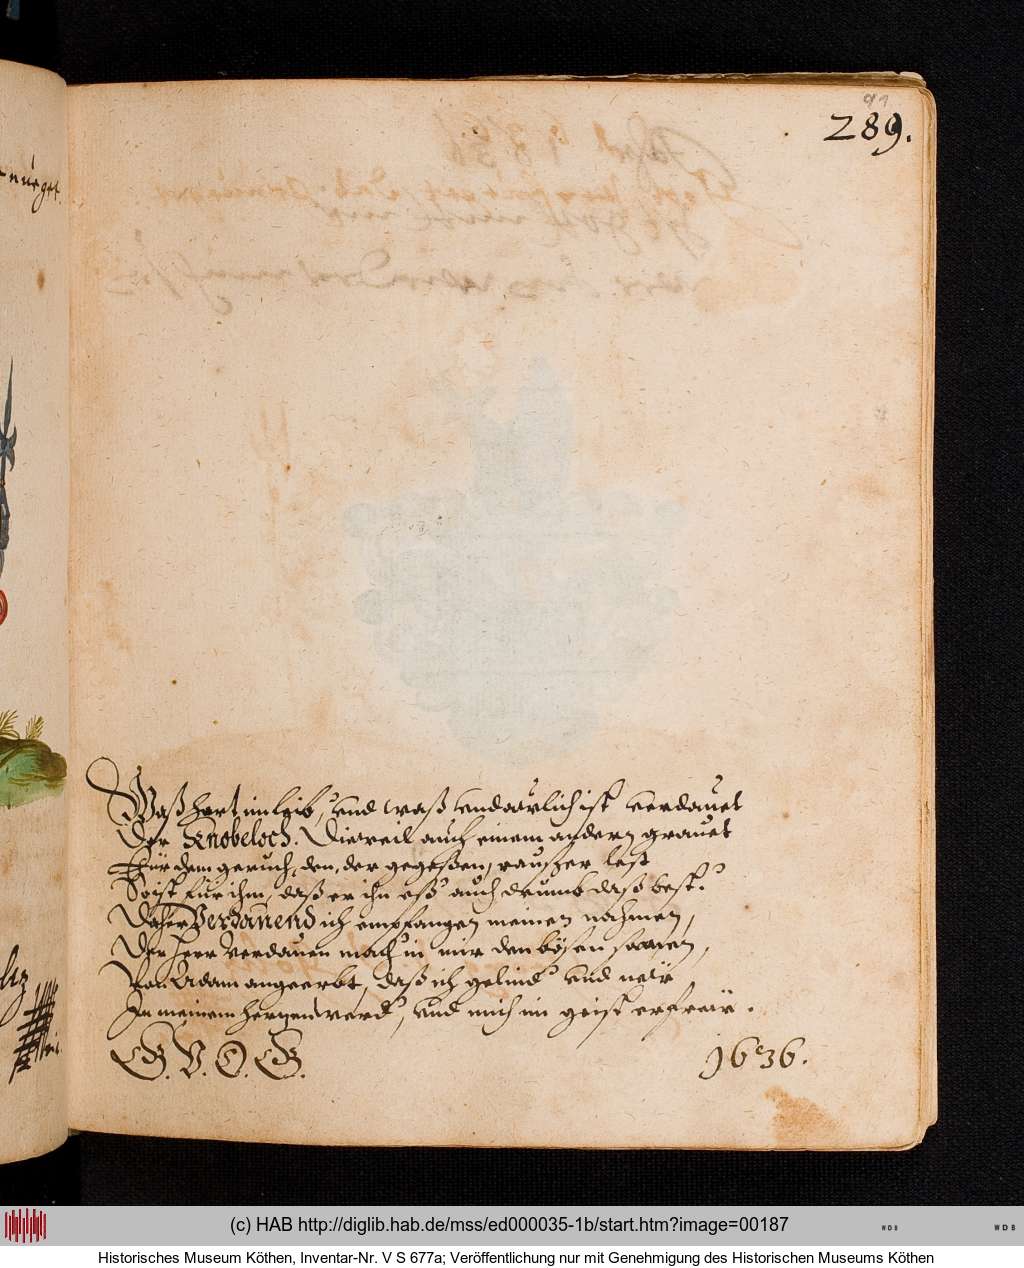 91
289.
Waß hart im leib, und waß undaulich ist verdauet
Der Knobeloch. Dieweil auch einem andern grauet
Für dem geruch, den, der gegeßen, raußer lest
So ist für ihm, daß er ihn eß' auch drumb daß best.
Daher Verdäuend ich empfangen meinen nahmen,
Der Herr Verdauen mach' in mir den bösen saamen,
Von Adam angeerbt, daß ich gelind' und neẅ
In meinem hertzen werd', und mich im geist erfreẅ.
G. V. O. G.
1636.
(c) HAB http://diglib.hab.de/mss/ed000035-1b/start.htm?image=00187
WDB
WDB
Historisches Museum Köthen, Inventar-Nr. V S 677a; Veröffentlichung nur mit Genehmigung des Historischen Museums Köthen